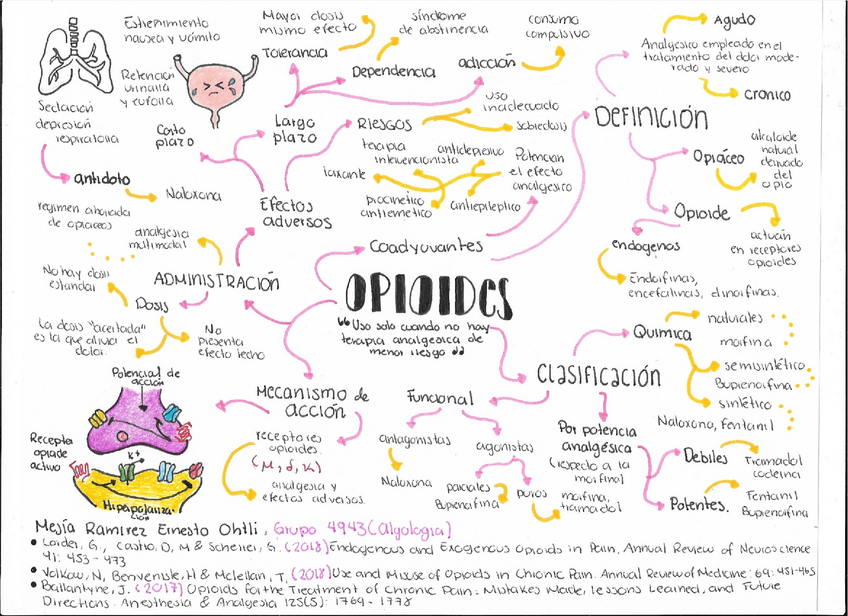 Estreñimiento
nausea y vómito
Retención
urinaria
y euforia
Sedación
depresión
respiratoria
Corto
plazo
antidoto
Naloxona
regimen ahorcada
de opiaceos
analgesia
multimodal
No hay dosis
estandar
Dosis
La dosis "acertada"
es la que alivia el
dolor.
No
presenta
efecto techo
ADMINISTRACIÓN
Mayor dosis
mismo efecto
Tolerancia
síndrome
de abstinencia
Dependencia
adicción
consumo
compulsivo
Largo
plazo
RIESGOS
uso
inadecuado
sobredosis
Efectos
adversos
terapia
intervencionista
laxante
antidepresivo
procinetico
antiemetico
antiepileptico
Potencian
el efecto
analgesico
Coadyuvantes
OPIOIDES
“Uso solo cuando no hay
terapia analgesica de
menor riesgo”
DEFINICIÓN
Agudo
Analgesico empleado en el
tratamiento del dolor mode-
rado y severo
CRONICO
Opiáceo
alcaloide
natural
derivado
del
opio
Opioide
actuan
en receptores
opioides
endogenos
Endorfinas,
encefalinas, dinorfinas.
CLASIFICACIÓN
Quimica
naturales
morfina
semisintético
Buprenorfina
sintético
Naloxona, fentanil
Funcional
antagonistas
Naloxona
agonistas
parciales
Buprenorfina
puros
morfina,
tramadol
Por potencia
analgésica
(respecto a la
morfina)
Debiles
Tramadol
codeina
Potentes.
Fentanil
Buprenorfina
Mecanismo de
acción
receptores
opioides
(μ, δ, κ)
analgesia y
efectos adversos.
Potencial de
acción
Receptor
opiode
activo
K+
Hiperpolariza-
ción
Mejía Ramirez Ernesto Ohtli, Grupo 4943 (Algologia)
• Corder, G., Castro, D, M & Scherrer, G. (2018) Endogenous and Exogenous Opioids in Pain. Annual Review of Neuroscience
41: 453-473
• Volkow, N, Benveniste, H & Mclellan, T, (2018) Use and Misuse of Opioids in Chronic Pain. Annual Review of Medicine: 69: 451-465
• Ballantyne, J. (2017) Opioids for the Treatment of Chronic Pain: Mistakes Made, lessons Learned, and Future
Directions. Anesthesia & Analgesia 125(5): 1769-1778